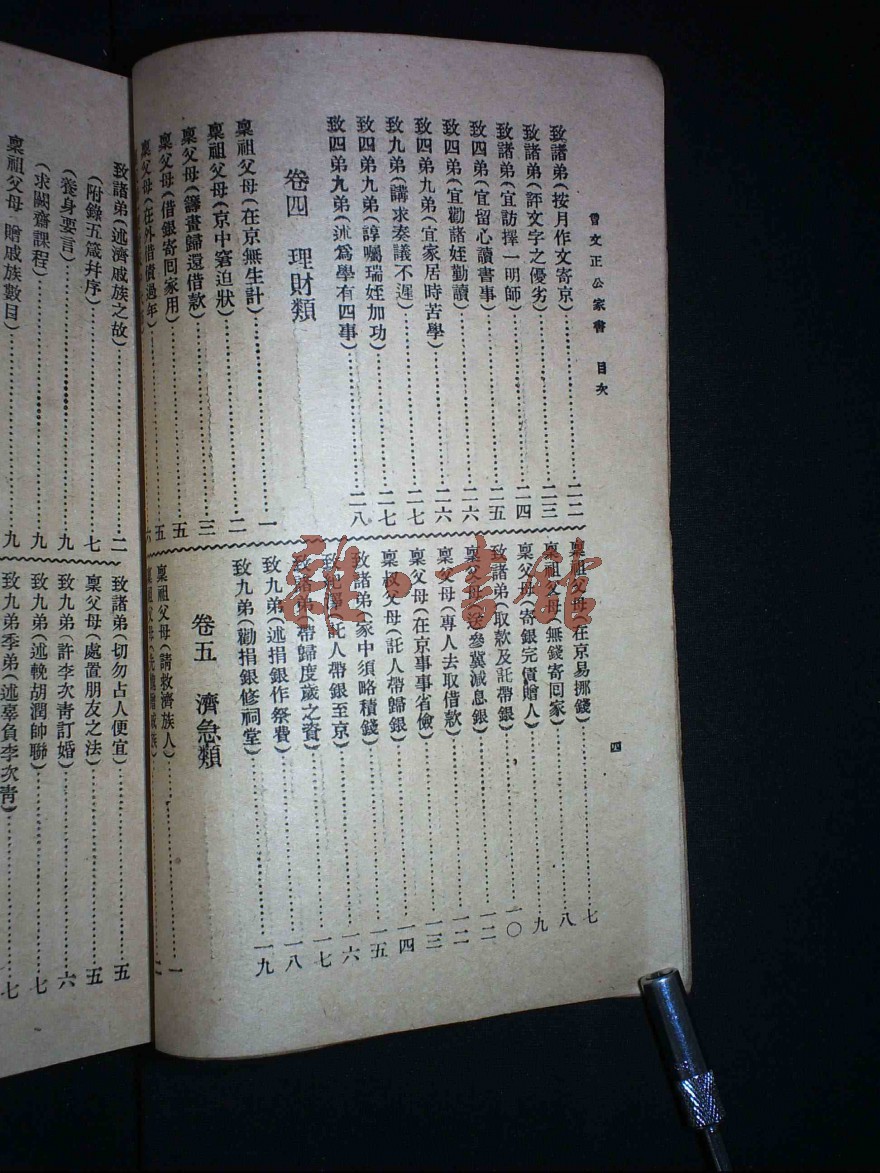 曾文正公家書 目次
四
致諸弟(按月作文寄京)二二
致諸弟(評文字之優劣)二三
致諸弟(宜訪擇一明師)二四
致四弟(宜留心讀書事)二五
致四弟(宜勸諸姪勤讀)二六
致四弟九弟(宜家居時苦學)二六
致九弟(講求奏議不遲)二七
致四弟九弟(諄囑瑞姪加功)二七
致四弟九弟(述為學有四事)二八
卷四 理財類
稟父母(在京無生計)一
稟祖父母(京中窘迫狀)二
稟父母(籌畫歸還借款)三
稟父母(借銀寄囘家用)五
稟父母(在外借債過年)五
六
稟祖父母(在京易挪錢)七
稟祖父母(無錢寄囘家)八
稟父母(寄銀完債贈人)九
致諸弟(取款及託帶銀)一〇
稟父母(送參冀減息銀)一二
稟父母(專人去取借款)一二
稟父母(在京事事省儉)一三
稟叔父母(託人帶歸銀)一四
致諸弟(家中須略積錢)一五
託人帶銀至京)一六
致諸弟(帶歸度歲之資)一七
致九弟(述捐銀作祭費)一八
致九弟(勸捐銀修祠堂)一九
卷五 濟急類
稟祖父母(請救濟族人)一
稟祖父母 二
致諸弟(述濟戚族之故)二
(附錄五箴幷序)七
(養身要言)九
(求闕齋課程)九
稟祖父母(贈戚族數目)九
致諸弟(切勿占人便宜)五
稟父母(處置朋友之法)五
致九弟(許李次靑訂婚)六
致九弟(述輓胡潤帥聯)七
致九弟季弟(述辜負李次靑)七
雜·書館